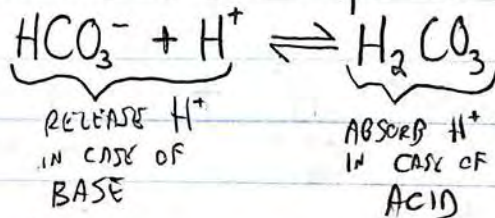 HCO₃⁻ + H⁺ ⇌ H₂CO₃
RELEASE H⁺
IN CASE OF
BASE
ABSORB H⁺
IN CASE OF
ACID